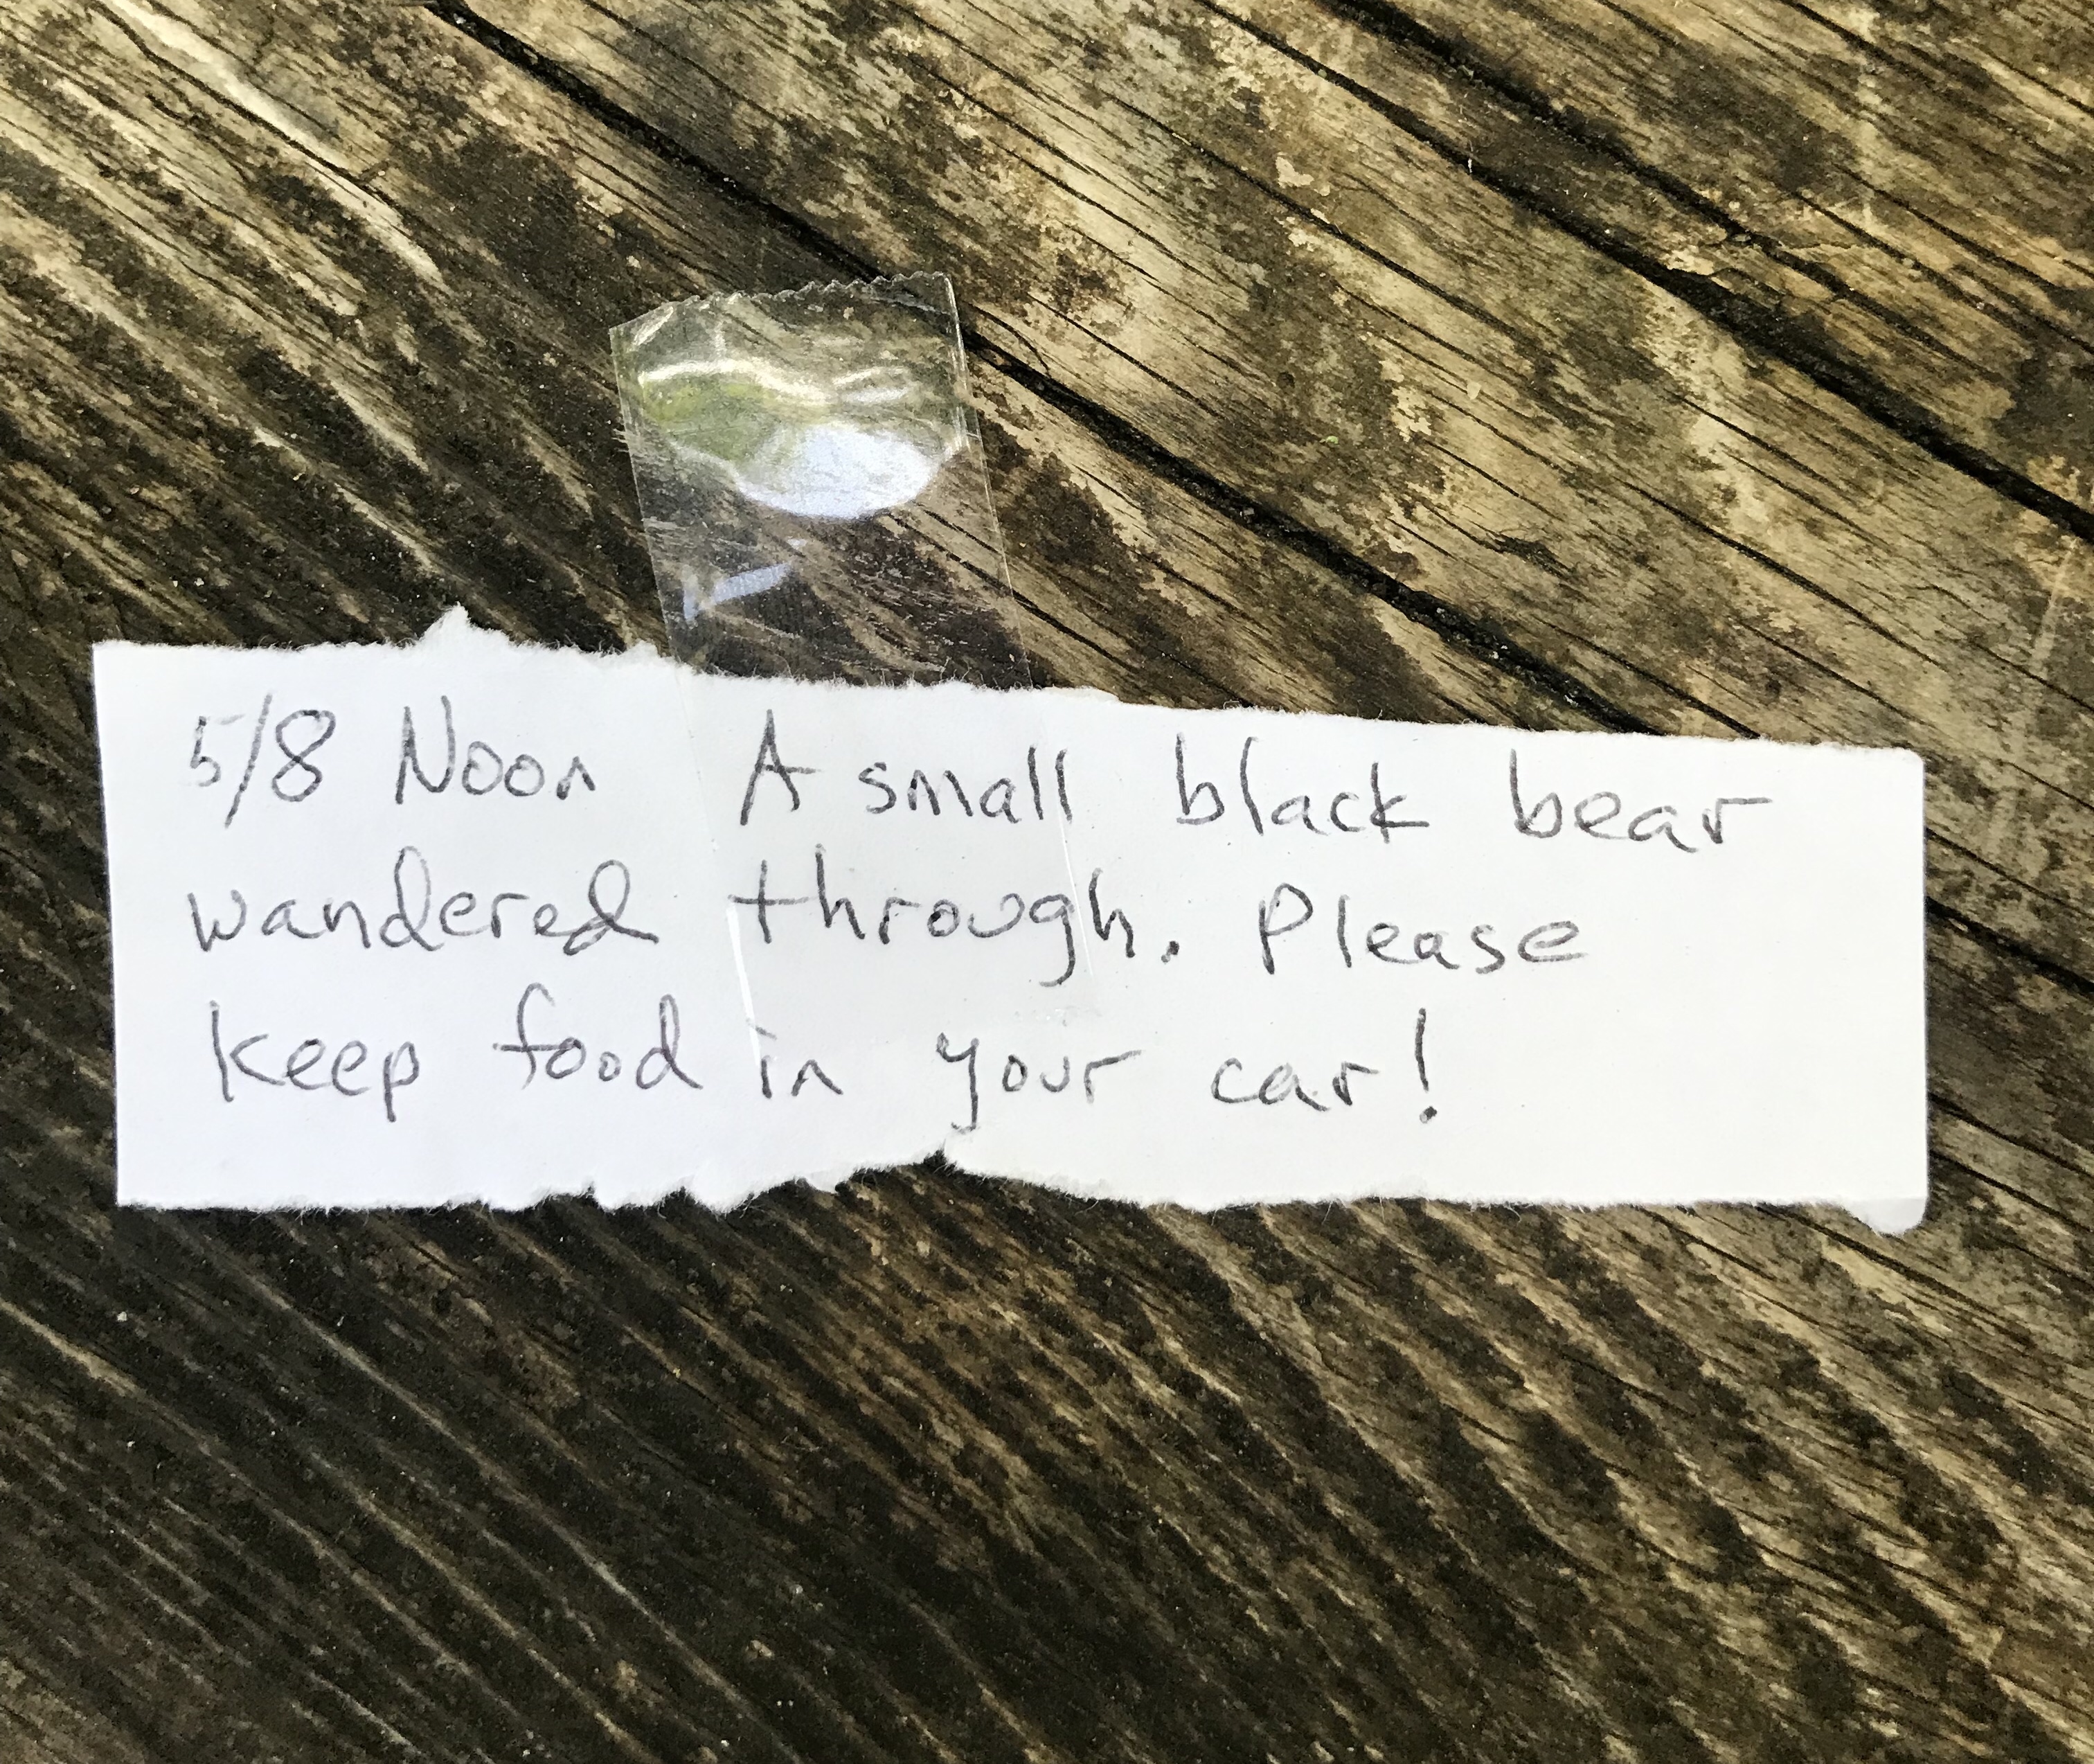 5/8 Noon A small black bear
wandered through. Please
keep food in your car!